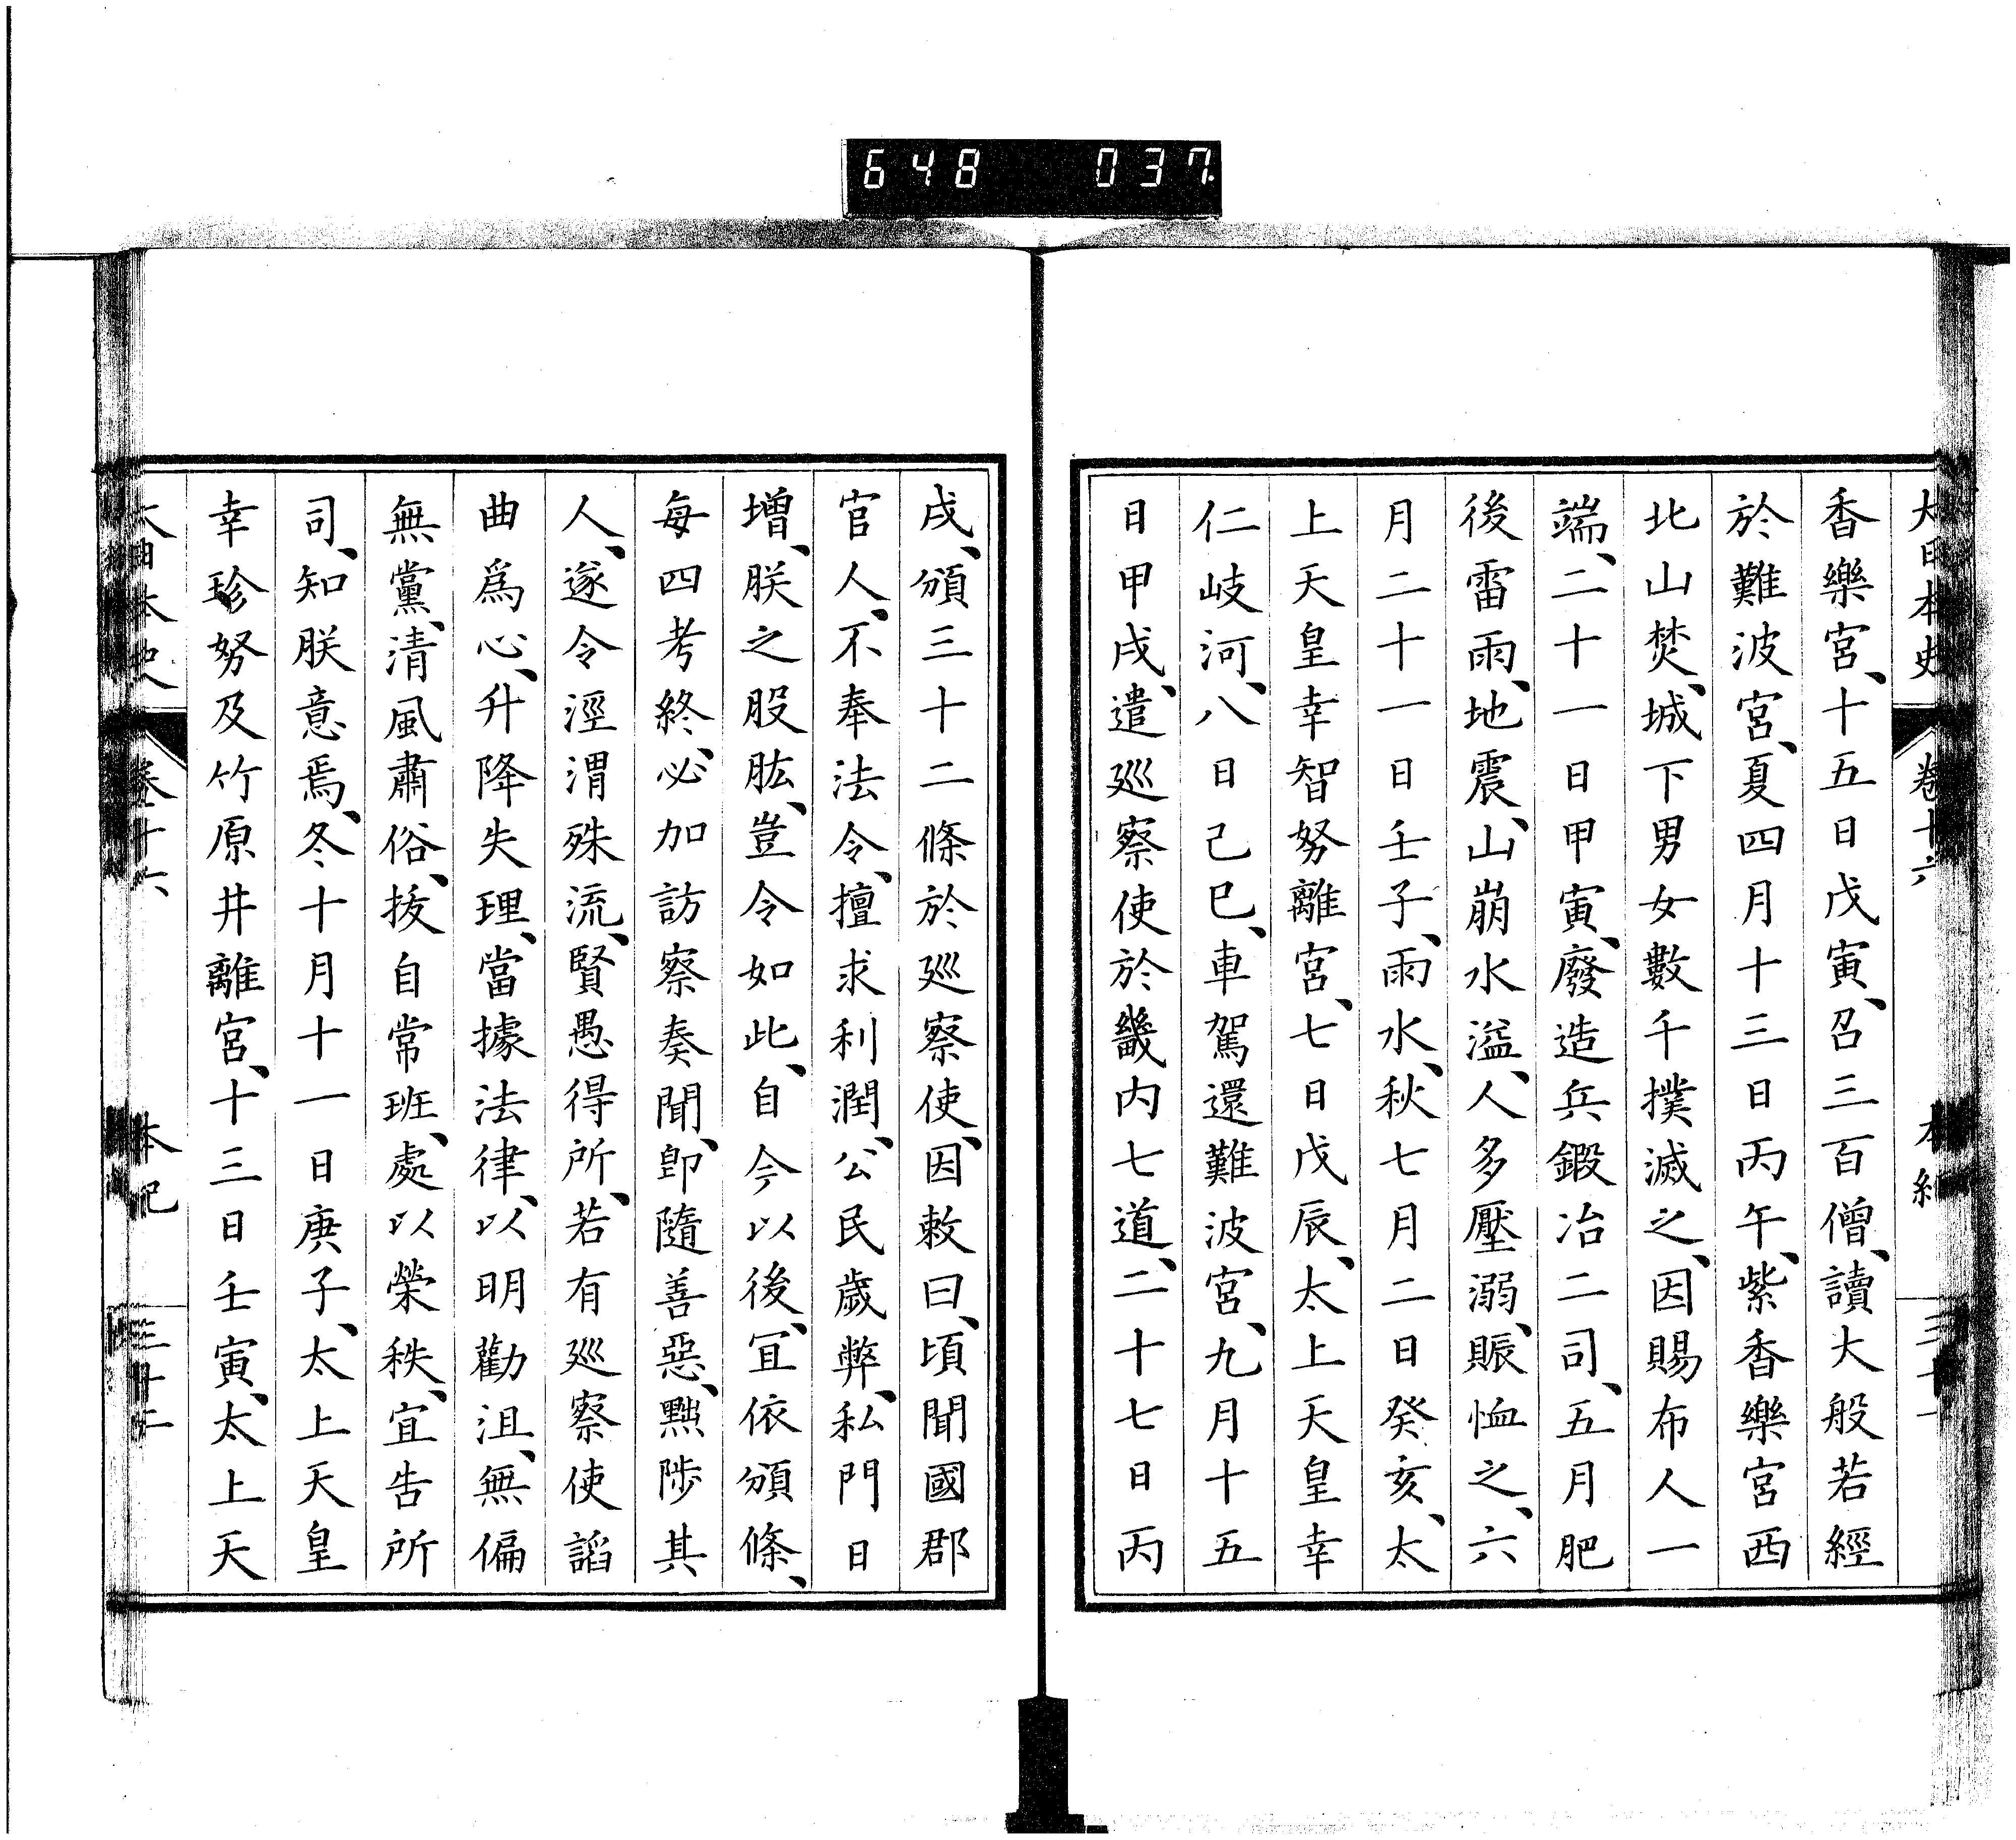 648 037
大日本史 卷十六 本紀 三十一
香樂宮、十五日戊寅、召三百僧、讀大般若經
於難波宮、夏四月十三日丙午、紫香樂宮西
北山焚、城下男女數千撲滅之、因賜布人一
端、二十一日甲寅、廢造兵鍛冶二司、五月肥
後雷雨、地震、山崩水溢、人多壓溺、賑恤之、六
月二十一日壬子、雨水、秋七月二日癸亥、太
上天皇幸智努離宮、七日戊辰、太上天皇幸
仁岐河、八日己巳、車駕還難波宮、九月十五
日甲戌、遣廵察使於畿内七道、二十七日丙
戌、頒三十二條於廵察使、因敕曰、頃聞國郡
官人、不奉法令、擅求利潤、公民歲弊、私門日
增、朕之股肱、豈令如此、自今以後、宜依頒條、
每四考終、必加訪察奏聞、卽隨善惡、黜陟其
人、遂令涇渭殊流、賢愚得所、若有廵察使諂
曲爲心、升降失理、當據法律、以明勸沮、無偏
無黨、清風肅俗、拔自常班、處以榮秩、宜告所
司、知朕意焉、冬十月十一日庚子、太上天皇
幸珍努及竹原井離宮、十三日壬寅、太上天
大日本史 卷十六 本紀 三十二